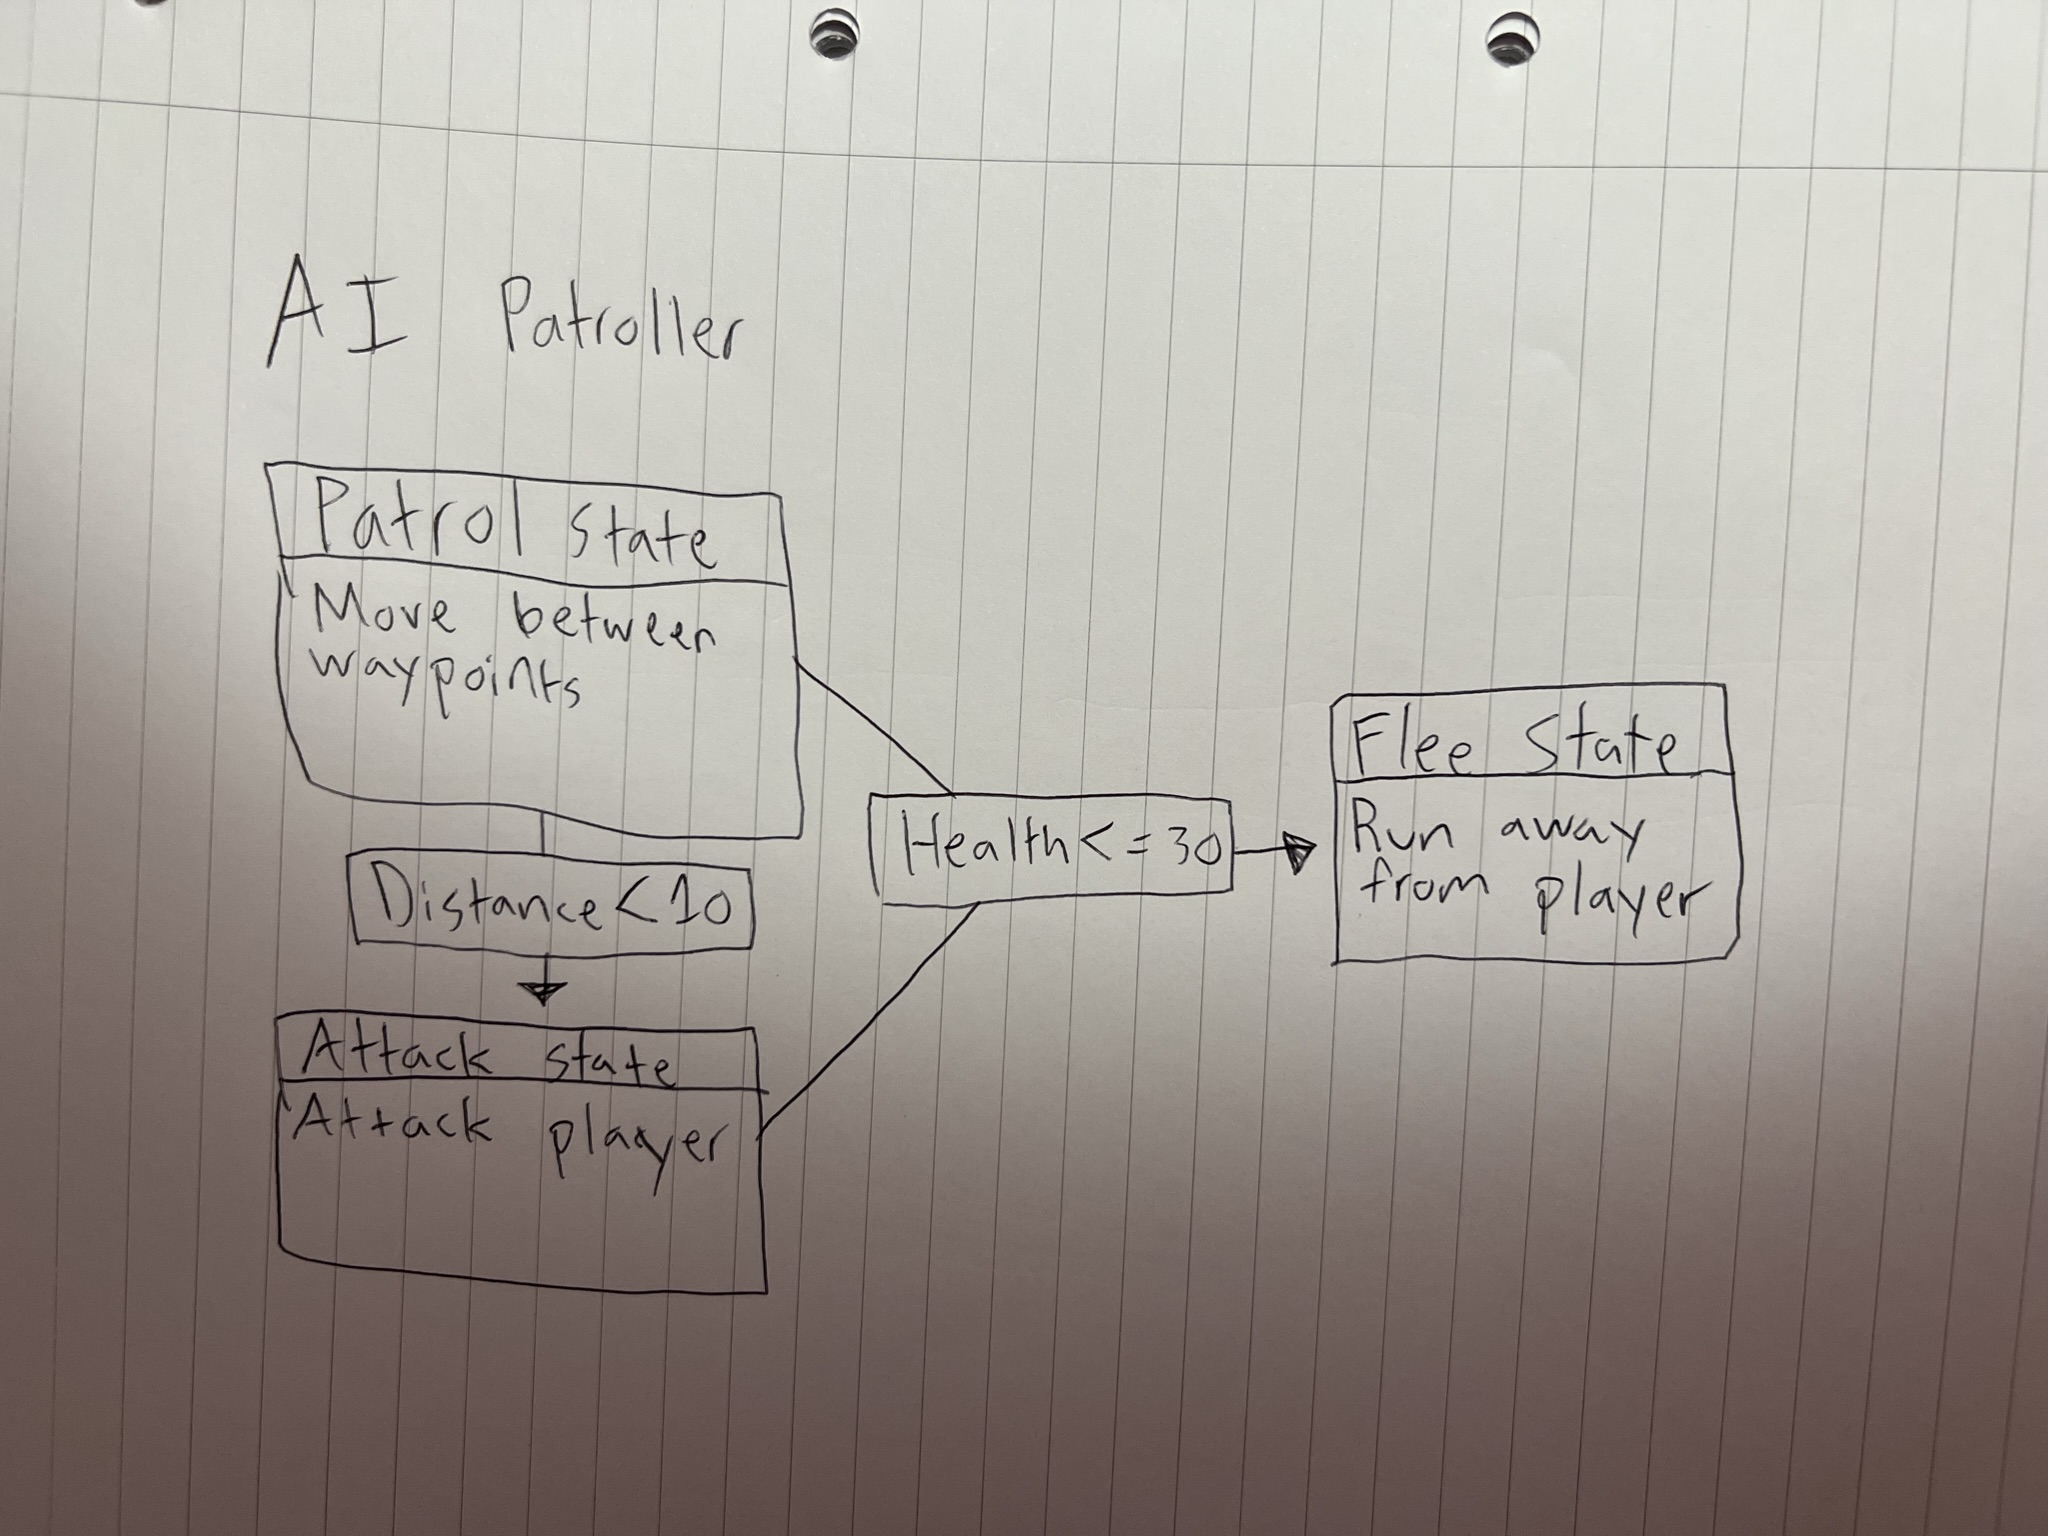 AI Patroller
Patrol state
Move between
waypoints
Distance < 10
Attack state
Attack player
Health <= 30
Flee State
Run away
from player